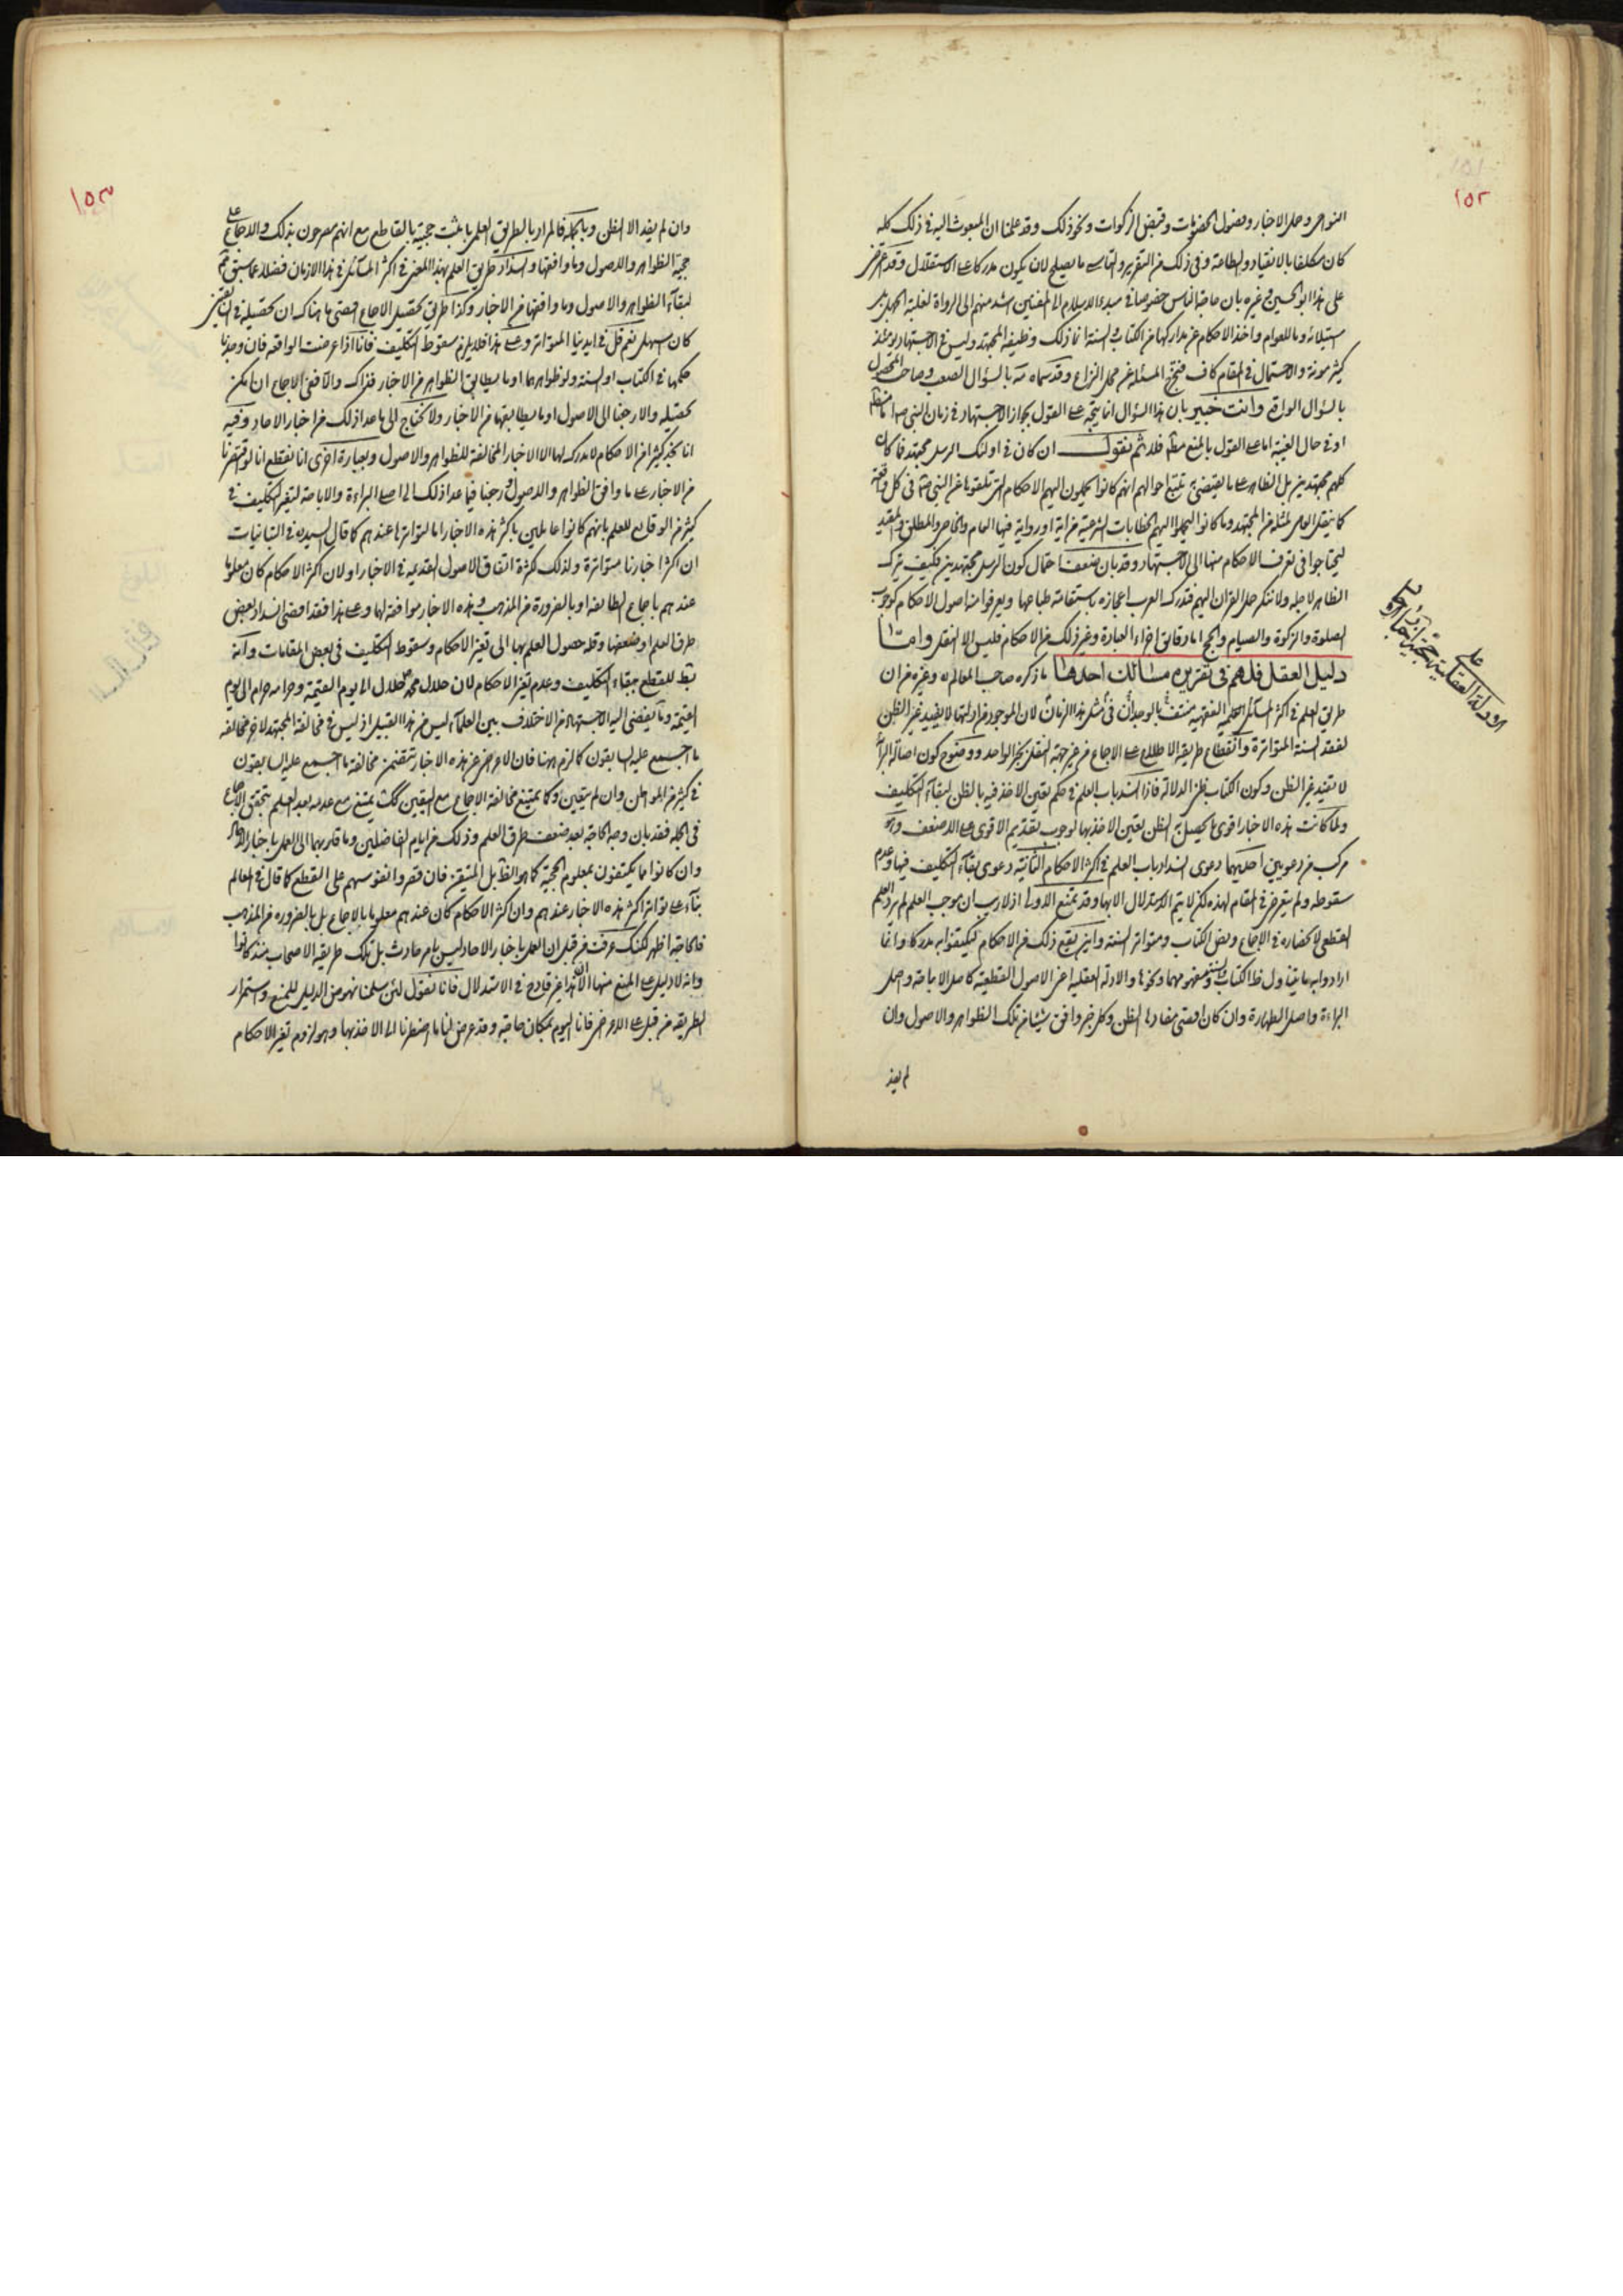 ١٥٢
كان مكلفا بالانقياد والطاعة وفى ذلك من التقرير والتأسى ما يصلح لان يكون مدركا على الاستقلال وقد اعترض
على هذا ابو الحسين وغيره بان حاجة الناس خصوصا فى مبدء الاسلام الى المفتين اشد منهم الى الرواة لغلبة الجهل
وما للعوام واخذ الاحكام عن مداركها من الكتاب والسنة انما ذلك وظيفة المجتهد وليس فى الاجتهاد يومئذ
كثير مؤنة والاحتمال فى المقام كاف فتخرج المسئلة عن محل النزاع وقد سماه بالسؤال الصعب وصاحب المحصول
بالسؤال الوارد وانت خبير بان هذا السؤال انما يتجه على القول بجواز الاجتهاد فى زمان النبى ص اما مطلقا
او فى حال الغيبة اما على القول بالمنع مطلقا فلا ثم نقول ان كان فى اولئك الرسل مجتهد فما كان
كلهم مجتهدين بل الظاهر على ما يقتضى به تتبع احوالهم انهم كانوا يحملون اليهم الاحكام التى تلقوها عن النبى ص فى كل واقعة
كما ينقل العامى لمثله عن المجتهد وما كانوا ليحملوا اليهم الخطابات الشرعية من اية او رواية فيها العام والخاص والمطلق والمقيد
ليحتاجوا فى تعرف الاحكام منها الى الاجتهاد وقد بان ضعف احتمال كون الرسل مجتهدين فكيف يترك
الظاهر لاجله ولا ننكر حمل القران اليهم فتدرك العرب اعجازه باستقامة طباعها ويعرفوا منه اصول الاحكام كوجوب
الصلوة والزكوة والصيام والحج اما دقايق اجزاء العبادة وغير ذلك من الاحكام فليس الا النقل وامّا
دليل العقل فلهم فى تقريره مسالك احدها ما ذكره صاحب المعالم ره وغيره من ان
طريق العلم فى اكثر المسائل العلمية الفقهية منتف بالوجدان فى مثل هذا الزمان لان الموجود من ادلتها لا يفيد غير الظن
لفقد السنة المتواترة وانقطاع طريق الاطلاع على الاجماع من غير جهة النقل بخبر الواحد ووضوح كون اصالة البراءة
لا تفيد غير الظن وكون الكتاب ظنى الدلالة فاذا انسد باب العلم فى حكم تعين الاخذ فيه بالظن لبقاء التكليف
ولما كانت هذه الاخبار اقوى ما يحصل به الظن تعين الاخذ بها لوجوب تقديم الاقوى على الاضعف وهو
مركب من دعويين احديهما دعوى انسداد باب العلم فى اكثر الاحكام الثانية دعوى بقاء التكليف فيها وعدم
سقوطه ولم يتعرض فى المقام لهذه لكن لا يتم الاستدلال الا بها وقد تمنع الاولى اذ لا ريب ان موجب العلم لم يرد العلم
القطعى لانحصاره فى الاجماع ونص الكتاب ومتواتر السنة واين يقع ذلك من الاحكام ليكتفوا به مدركا وانما
ارادوا به ما يتناول ظاهر الكتاب والسنة ومفهومهما ونحوها والادلة العقلية اعنى الاصول القطعية كاصل الاباحة واصل
البراءة واصل الطهارة وان كان اقصى مفادها الظن وكل خبر وافق شيئا من تلك الظواهر والاصول وان
لم يفد
الادلة العقلية على حجية اخبار الاحاد
١٥٣
وان لم يفد الا الظن وبالجملة فالمراد بالطريق العلمى ما ثبت حجيته بالقاطع مع انهم مصرحون بذلك والاجماع على
حجية الظواهر والاصول وما وافقها وانسداد طريق العلم بهذا المعنى فى اكثر المسائل فى هذا الازمان فضلا عما سبق
لبقاء الظواهر والاصول وما وافقها من الاخبار وكذا طريق تحصيل الاجماع اقصى ما هناك ان تحصيله فى
كان اسهل نعم قل فى ايدينا المتواتر وعلى هذا فلا يلزم سقوط التكليف فانا اذا عرضت الواقعة فان وجدنا
حكمها فى الكتاب او السنة ولو ظواهرهما او ما يطابق الظواهر من الاخبار فذاك والا ففى الاجماع ان امكن
تحصيله والا رجعنا الى الاصول او ما يطابقها من الاخبار ولا نحتاج الى ما عدا ذلك من اخبار الاحاد وفيه
انا نجد كثيرا من الاحكام لا مدرك لها الا الاخبار المخالفة للظواهر والاصول وبعبارة اخرى انا نقطع انا لو اقتصرنا
من الاخبار على ما وافق الظواهر والاصول ورجعنا فيما عدا ذلك الى اصل البراءة والاباحة لتغير التكليف فى
كثير من الوقايع للعلم بانهم كانوا عاملين باكثر هذه الاخبار اما لتواترها عندهم كما قال السيد ره فى التبانيات
ان اكثر اخبارنا متواترة ولذلك كثرة اتفاق الاصول القديمة فى الاخبار او لان اكثر الاحكام كان معلوما
عندهم باجماع الطائفة او بالضرورة من المذهب وهذه الاخبار موافقة لها وعلى هذا فقد افضى انسداد بعض
طرق العلم او ضعفها وقلة حصول العلم بها الى تغير الاحكام وسقوط التكليف فى بعض المقامات وانه
بط للقطع ببقاء التكليف وعدم تغير الاحكام لان حلال محمد ص حلال الى يوم القيمة وحرامه حرام الى يوم
القيمة وما يفضى اليه الاجتهاد من الاختلاف بين العلماء ليس من هذا القبيل اذ ليس فى مخالفة المجتهد لاخر مخالفة
ما اجمع عليه السابقون كما لزم ههنا فان الاعراض عن هذه الاخبار يتضمن مخالفة ما اجمع عليه السابقون
فى كثير من المواطن وان لم يتعين وكما يمتنع مخالفة الاجماع مع التعيين كك يمتنع مع عدمه بعد العلم بتحقق الاجماع
فى الجملة فقد بان وجه الحاجة بعد ضعف طرق العلم وذلك من ايام الفاضلين وما قاربهما الى العمل باخبار الاحاد
وان كانوا ما يكتفون بمعلوم الحجية كما هو الظ بل المتيقن فان قصروا نفوسهم على القطع كما قال فى المعالم
بناء على تواتر اكثر هذه الاخبار عندهم وان اكثر الاحكام كان عندهم معلوما بالاجماع بل بالضرورة من المذهب
فالحاجة اظهر لكنك عرفت من قبل ان العمل باخبار الاحاد ليس بامر حادث بل تلك طريقة الاصحاب منذ كانوا
وانه لا دليل على المنع منها الا ان هذا غير قادح فى الاستدلال فانا نقول لئن سلمنا نهوض الدليل للمنع واستمرار
الطريقة من قبل على الاعراض فانا اليوم بمكان حاجة وقد عرض لنا ما اضطرنا الى الاخذ بها وهو لزوم تغير الاحكام